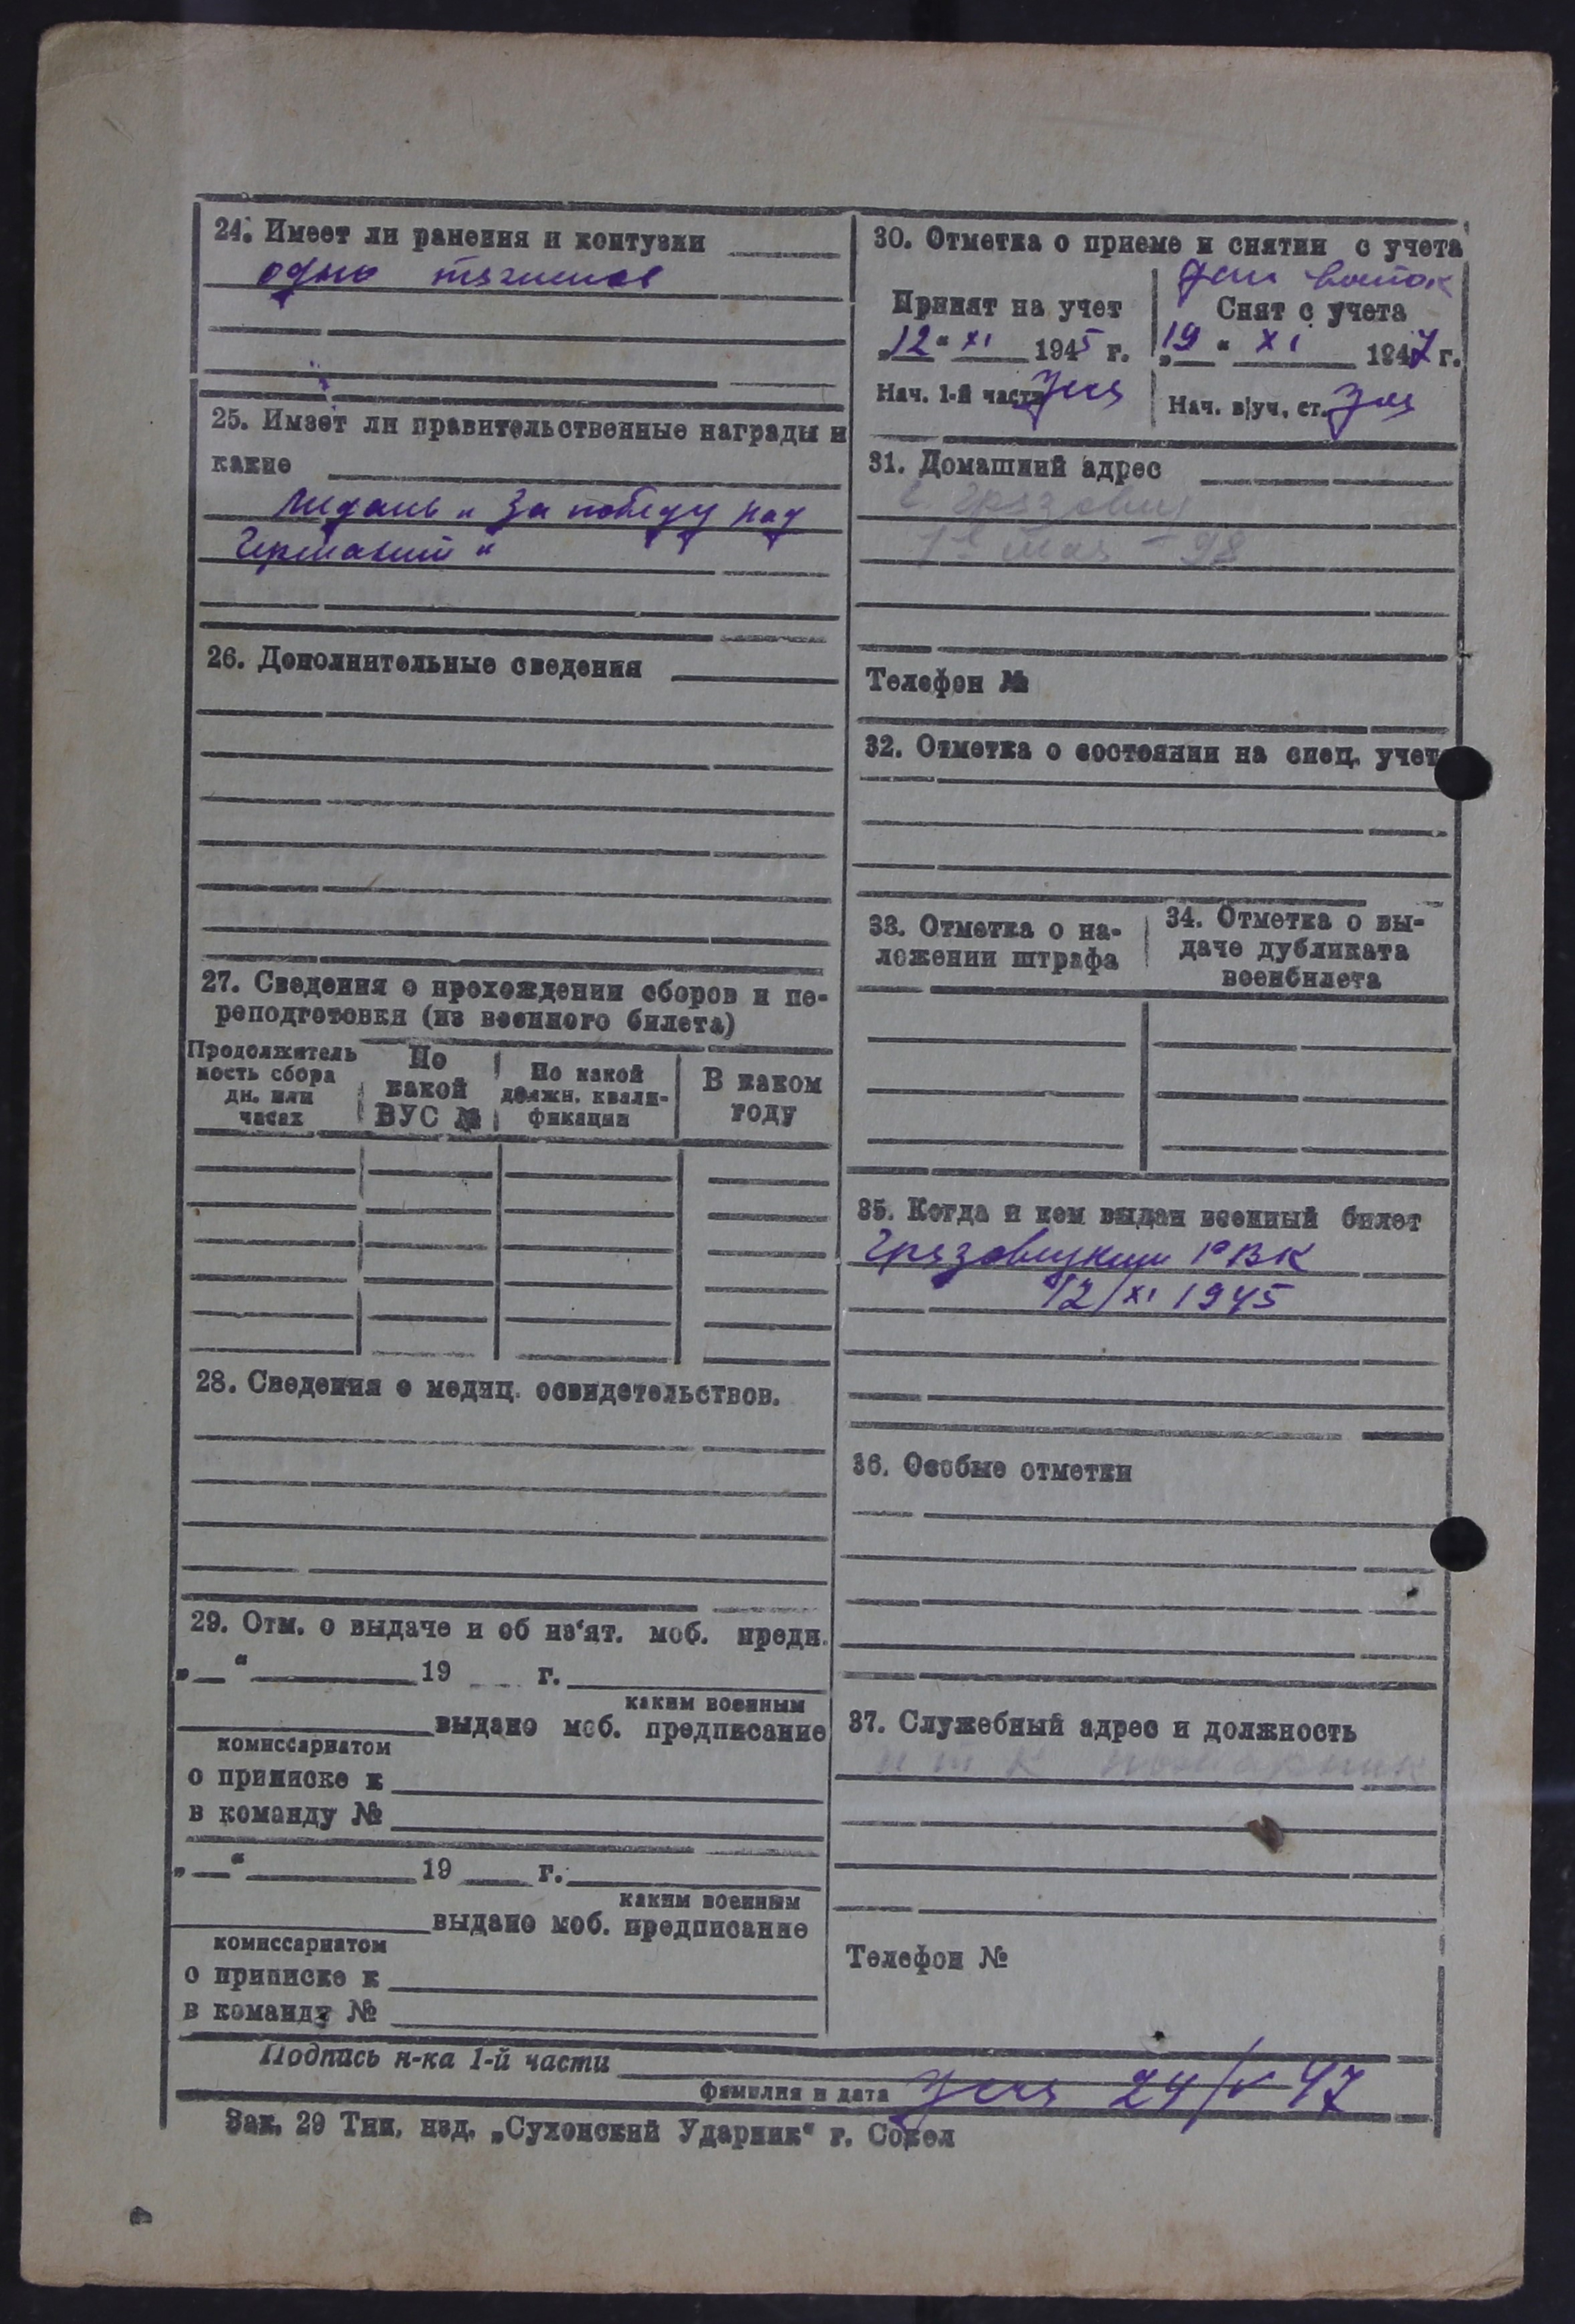 24. Имеет ли ранения и контузии
одно тяжелое
25. Имеет ли правительственные награды и
какие
медаль „За победу над
Германией“
26. Дополнительные сведения
27. Сведения о прохождении сборов и пе-
реподготовки (из военного билета)
Продолжитель
ность сбора
дн. или
часах
По
какой
ВУС №
По какой
должн. квали-
фикации
В каком
году
28. Сведения о медиц. освидетельствов.
29. Отм. о выдаче и об из‘ят. моб. предп.
„ “ 19 г.
каким военным
выдано моб. предписание
комиссариатом
о приписке к
в команду №
„ “ 19 г.
каким военным
выдано моб. предписание
комиссариатом
о приписке к
в команду №
30. Отметка о приеме и снятии с учета
Принят на учет
„12“ XI 1945 г.
Нач. 1-й части
восток
Снят с учета
„19“ XI 1947 г.
Нач. в/уч. ст.
31. Домашний адрес
г. Грязовец
1е мая - 98
Телефон №
32. Отметка о состоянии на спец. учет
33. Отметка о на-
ложении штрафа
34. Отметка о вы-
даче дубликата
военбилета
35. Когда и кем выдан военный билет
Грязовецким РВК
12/XI 1945
36. Особые отметки
37. Служебный адрес и должность
пожарник
Телефон №
Подпись н-ка 1-й части
фамилия и дата
24/V 47
Зак. 29 Тип. изд. „Сухонский Ударник“ г. Сокол